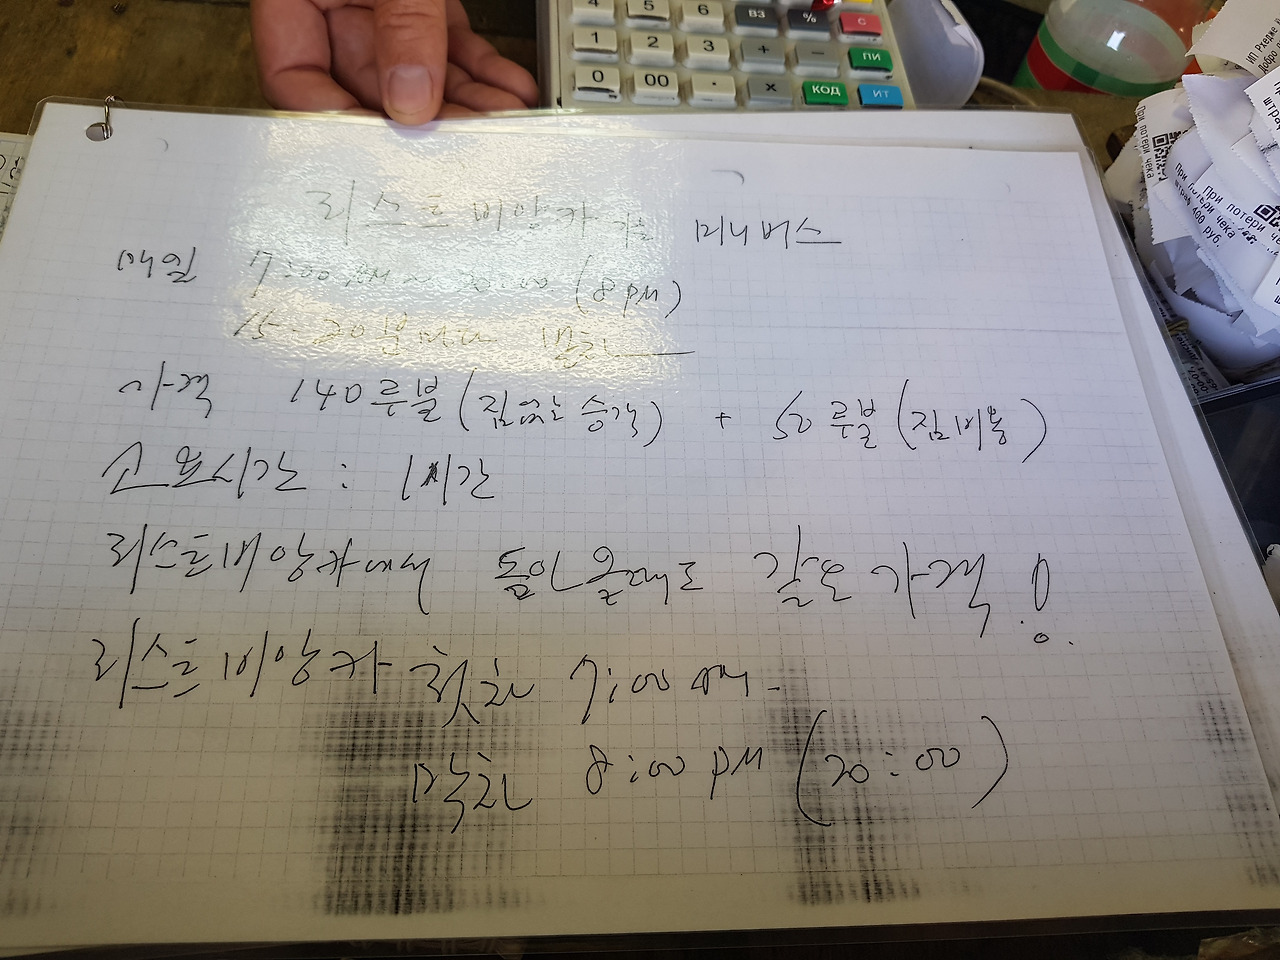 4 5 6 ВЗ % С
1 2 3 + − ПИ
0 00 · × КОД ИТ
리스트비앙카 가는 미니버스
매일 7:00 AM ~ 20:00 (8 PM)
15-20분마다 출발
가격 140루불 (짐없는 승객) + 50루불 (짐비용)
소요시간 : 1시간
리스트비앙카에서 돌아올때도 같은 가격!
리스트비앙카 첫차 7:00 AM.
막차 8:00 PM (20:00)
ИП
Добро
При потери чека
При потери чека
штраф 400 руб.
При потери че